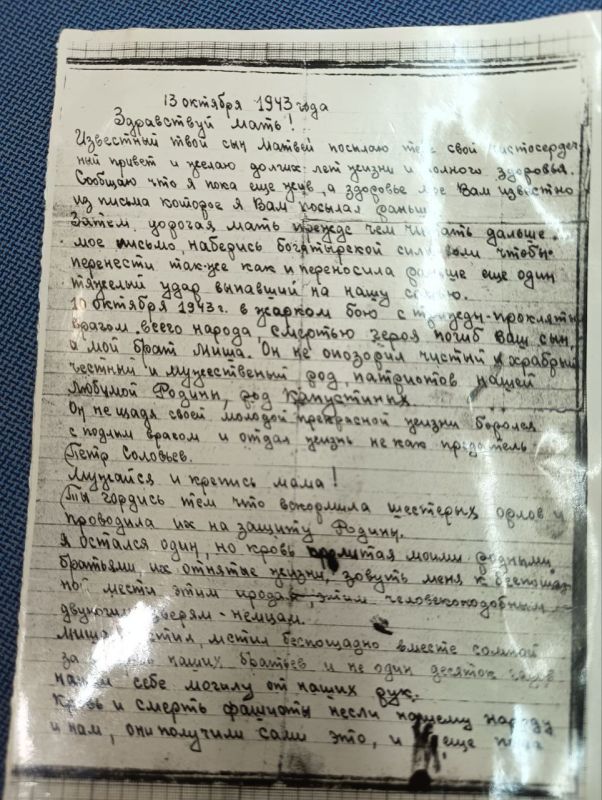 13 октября 1943 года
Здравствуй мать!
Известный твой сын Матвей посылаю тебе свой чистосердеч-
ный привет и желаю долгих лет жизни и полного здоровья.
Сообщаю что я пока еще жив, а здоровье мое Вам известно
из письма которое я Вам посылал раньше
Затем, дорогая мать прежде чем читать дальше
мое письмо, наберись богатырской силы воли чтобы
перенести так-же как и переносила раньше еще один
тяжелый удар выпавший на нашу семью.
10 октября 1943 г. в жарком бою с трижды-проклятым
врагом всего народа, смертью героя погиб Ваш сын,
а мой брат Миша. Он не опозорил чистый и храбрый
честный и мужественый род, патриотов нашей
любимой Родины, род Капустиных
Он не щадя своей молодой прекрасной жизни боролся
с подлым врагом и отдал жизнь не как предатель
(Петр Соловьев.
Мужайся и крепись мама!
(Ты гордись тем что вскормила шестерых орлов и
проводила их на защиту Родины.
Я остался один, но кровь пролитая моими родными
братьями, их отнятые жизни, зовут меня к беспощад-
ной мести этим уродам, этим человекоподобным
двуногим зверям - немцам.
Миша мстил, мстил беспощадно вместе сомной
за наших братьев и не один десяток
нашел себе могилу от наших рук.
Кровь и смерть фашисты несли нашему народу
и нам, они получили сами это, и еще